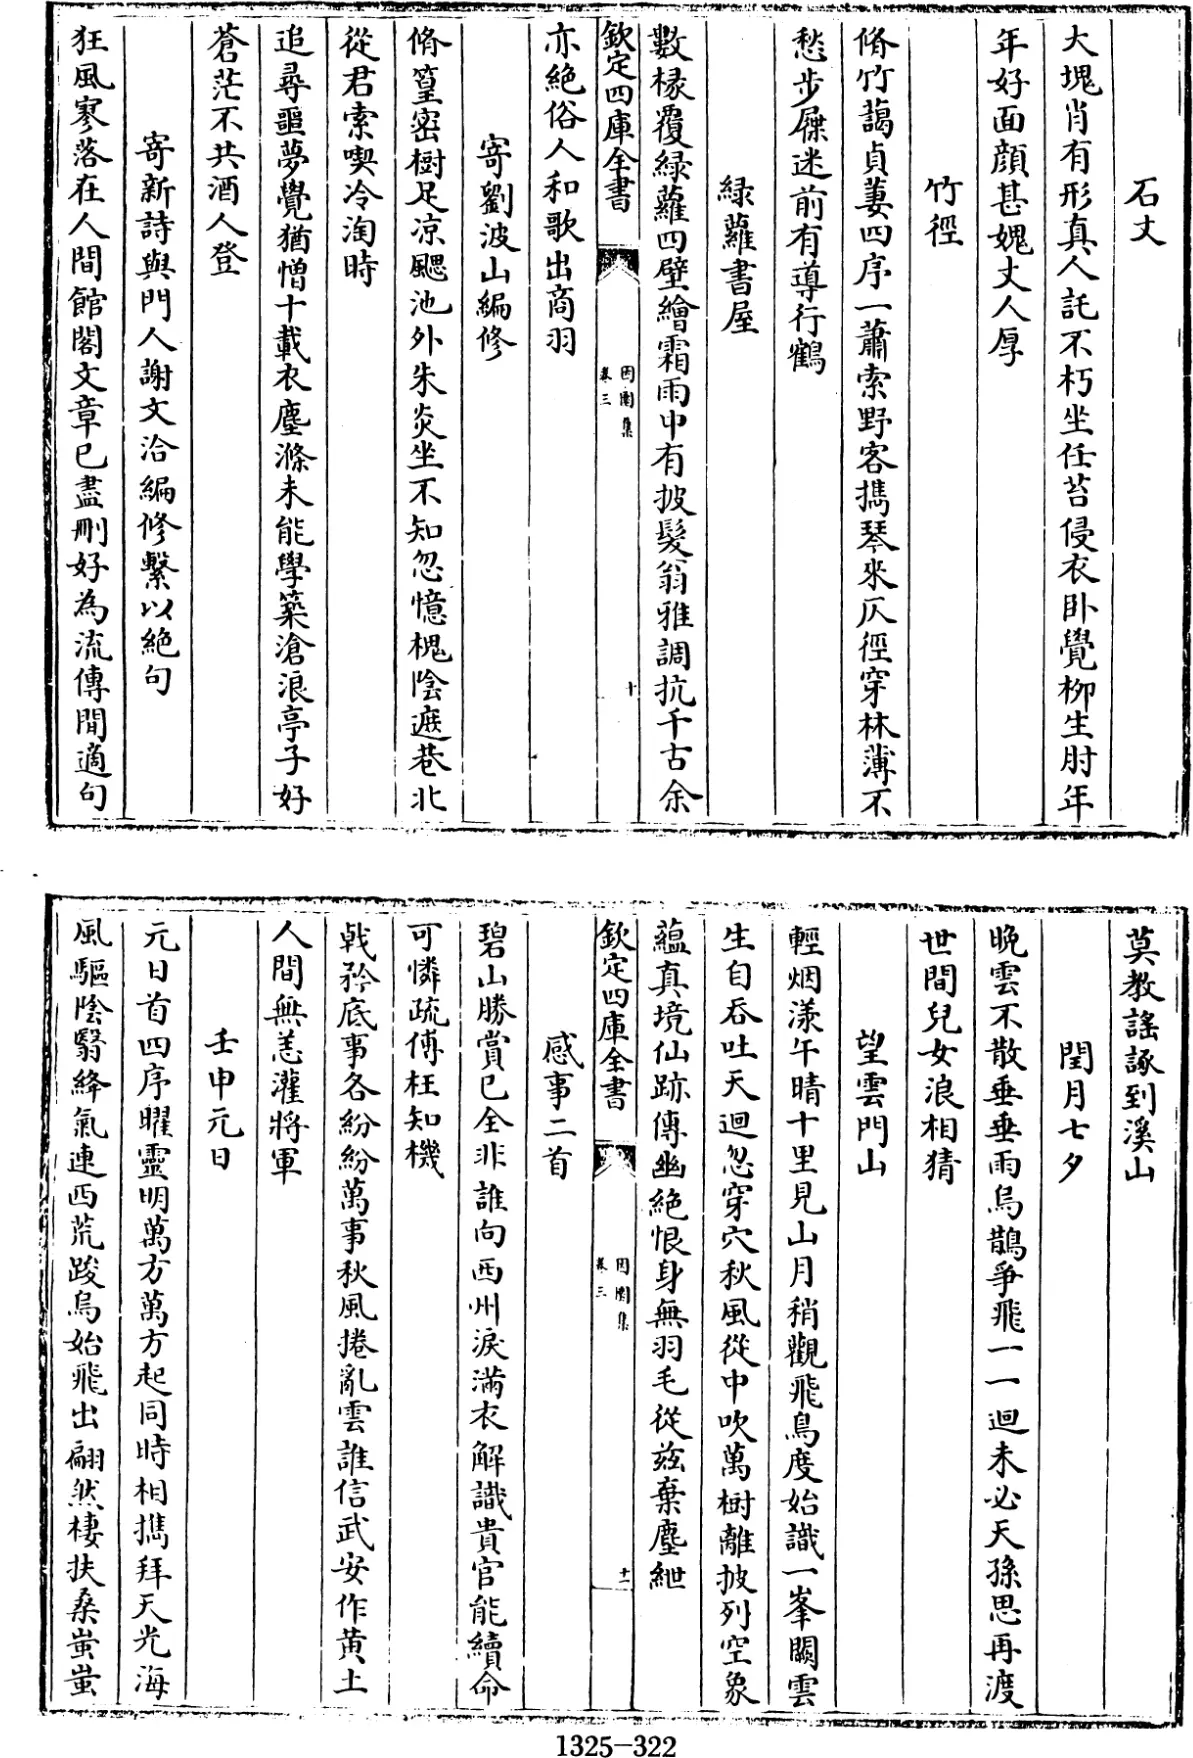 石丈
大塊肖有形真人託不朽坐任苔侵衣卧覺柳生肘年
年好面顔甚媿丈人厚
竹徑
脩竹藹貞萋四序一蕭索野客攜琴來仄徑穿林薄不
愁步屧迷前有導行鶴
緑蘿書屋
數椽覆緑蘿四壁繪霜雨中有披髮翁雅調抗千古余
欽定四庫全書
因園集
卷三
十
亦絶俗人和歌出商羽
寄劉波山編修
脩篁密樹足凉颸池外朱炎坐不知忽憶槐陰遮巷北
從君索喫冷淘時
追尋噩夢覺猶憎十載衣塵滌未能學築滄浪亭子好
蒼茫不共酒人登
寄新詩與門人謝文洽編修繫以絶句
狂風寥落在人間館閣文章已盡刪好為流傳閒適句
莫教謡諑到溪山
閏月七夕
晩雲不散垂垂雨烏鵲爭飛一一迴未必天孫思再渡
世間兒女浪相猜
望雲門山
輕烟漾午晴十里見山月稍觀飛鳥度始識一峯闕雲
生自吞吐天迴忽穿穴秋風從中吹萬樹離披列空象
藴真境仙跡傳幽絶恨身無羽毛從兹棄塵紲
欽定四庫全書
因園集
卷三
十一
感事二首
碧山勝賞已全非誰向西州淚滿衣解識貴官能續命
可憐疏傅枉知機
戟矜底事各紛紛萬事秋風捲亂雲誰信武安作黄土
人間無恙灌將軍
壬申元日
元日首四序曜靈明萬方萬方起同時相攜拜天光海
風驅陰翳絳氣連西荒踆烏始飛出翩然棲扶桑蚩蚩
1325-322